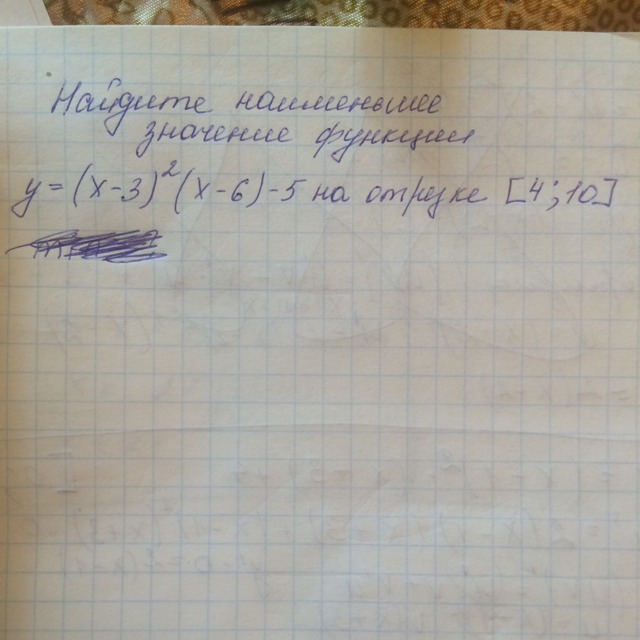 Найдите наименьшее
значение функции
y=(x-3)²(x-6)-5 на отрезке [4;10]